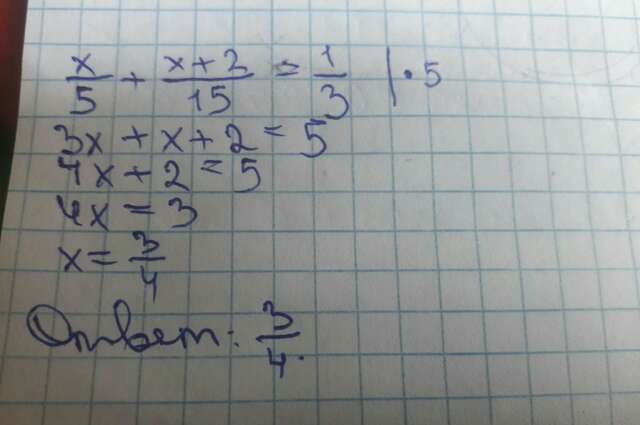 x/5 + x+2/15 = 1/3 | · 5
3x + x + 2 = 5
4x + 2 = 5
4x = 3
x = 3/4
Ответ: 3/4.